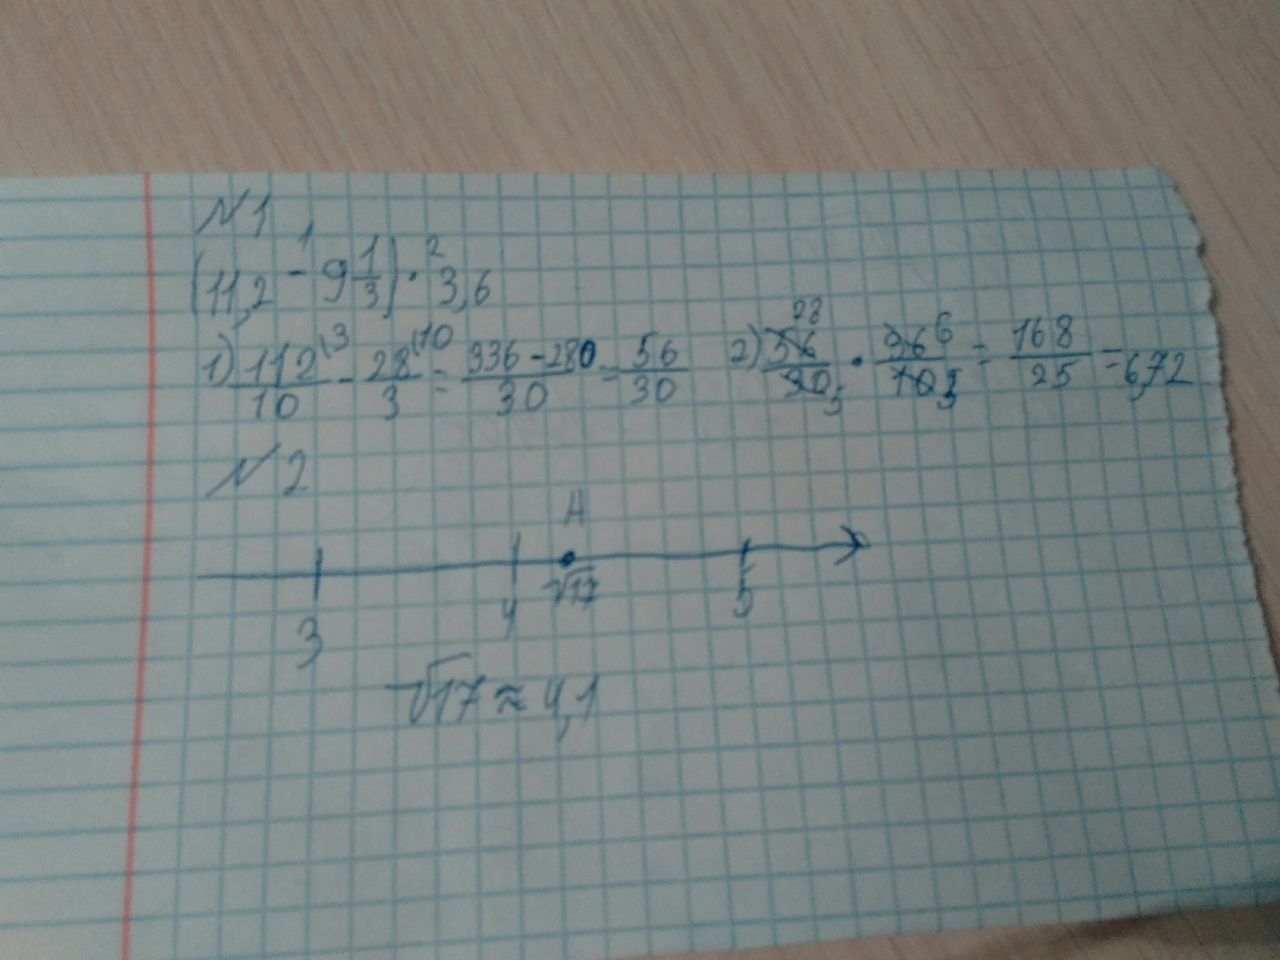 №1
(11,2 -¹ 9 1/3) ·² 3,6
1) 112\3/10 - 28\10/3 = 336-280/30 = 56/30 2) 56 28/30 5 · 36 6/10 5 = 168/25 = 6,72
№2
A
√17
3 4 5
√17 ≈ 4,1